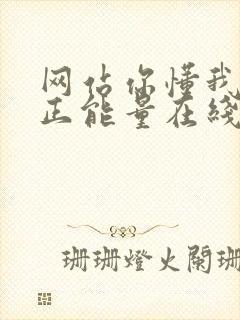 网站你懂我
正能量在线
珊珊燈火闌珊